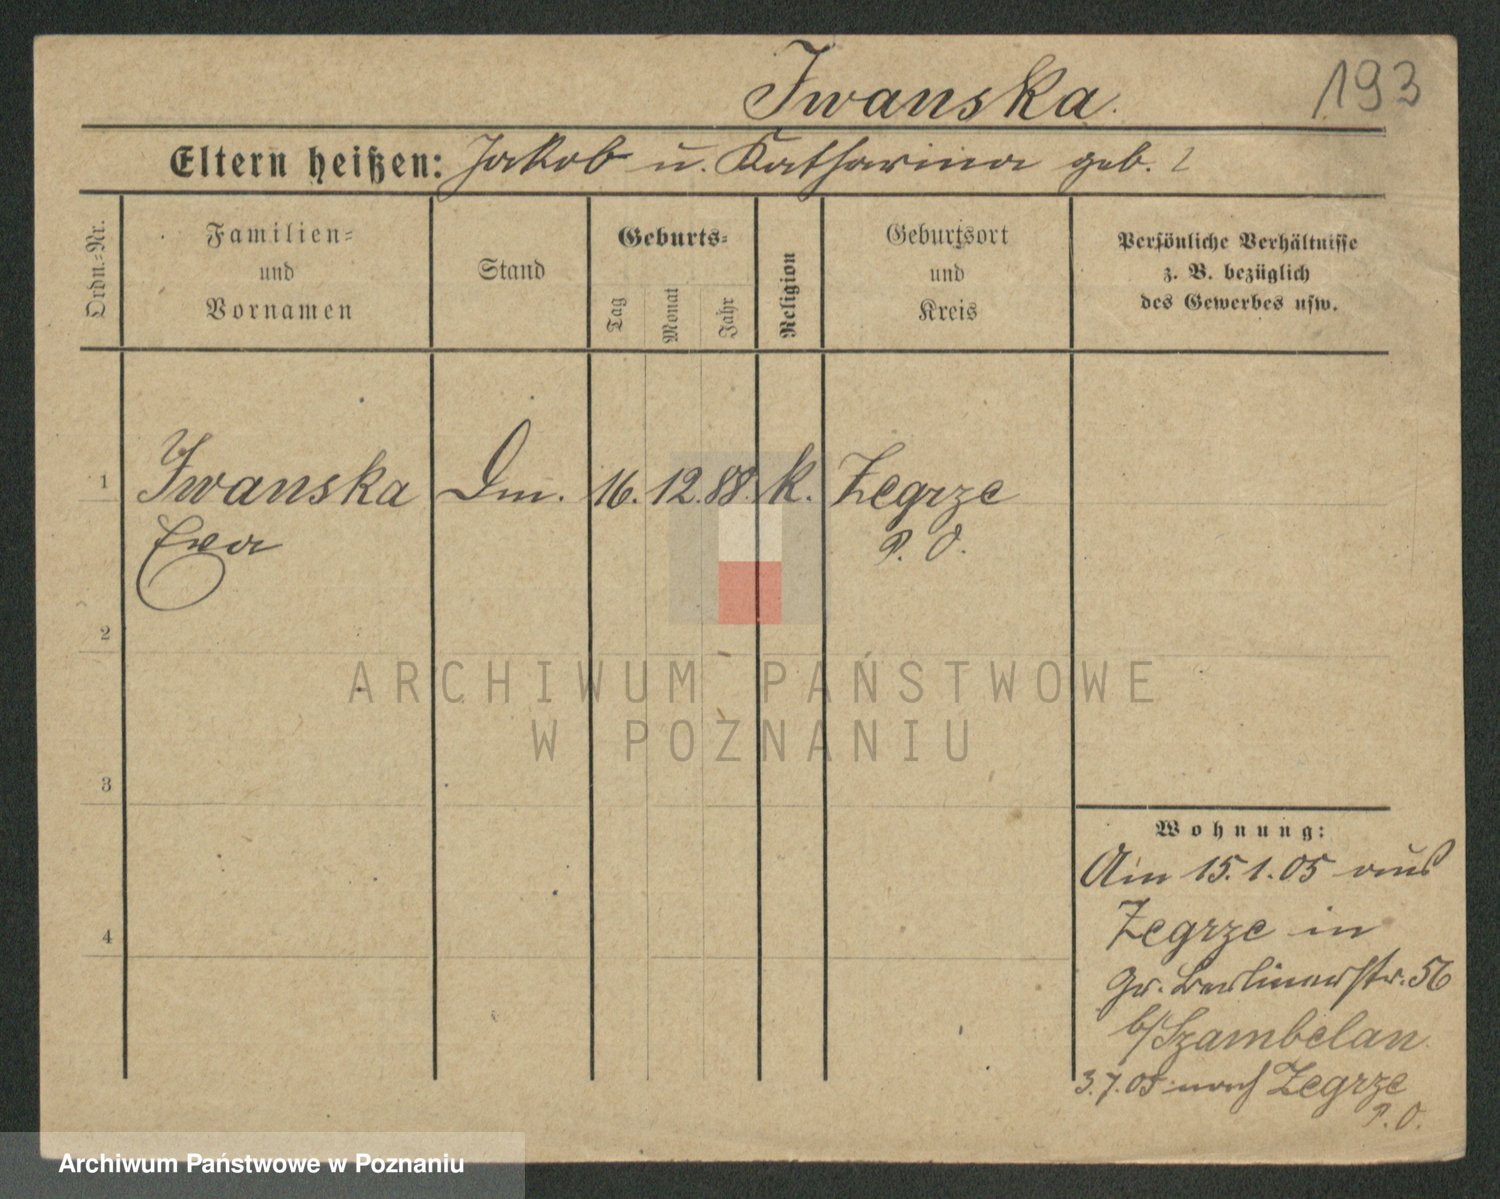 Iwanska
193
Eltern heißen: Jakob u. Katharina geb. ?
Ordn.-Nr.
Familien-
und
Vornamen
Stand
Geburts-
Tag
Monat
Jahr
Religion
Geburtsort
und
Kreis
Persönliche Verhältnisse
z. B. bezüglich
des Gewerbes usw.
1
Iwanska
Dm.
16.
12.
88.
k.
Zegrze
Ewa
P. O.
2
ARCHIWUM PAŃSTWOWE
W POZNANIU
3
Wohnung:
Am 15.1.05 aus
4
Zegrze in
Gr. Berlinerstr. 56
b/Szambelan
3.7.05 nach Zegrze
P. O.
Archiwum Państwowe w Poznaniu